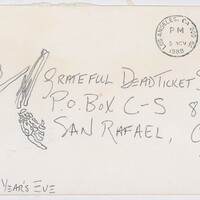 LOS ANGELES, CA
PM
5 NOV
1988
GRATEFUL DEAD TICKET S
P.O. BOX C-S 8
SAN RAFAEL, C
YEAR'S EVE